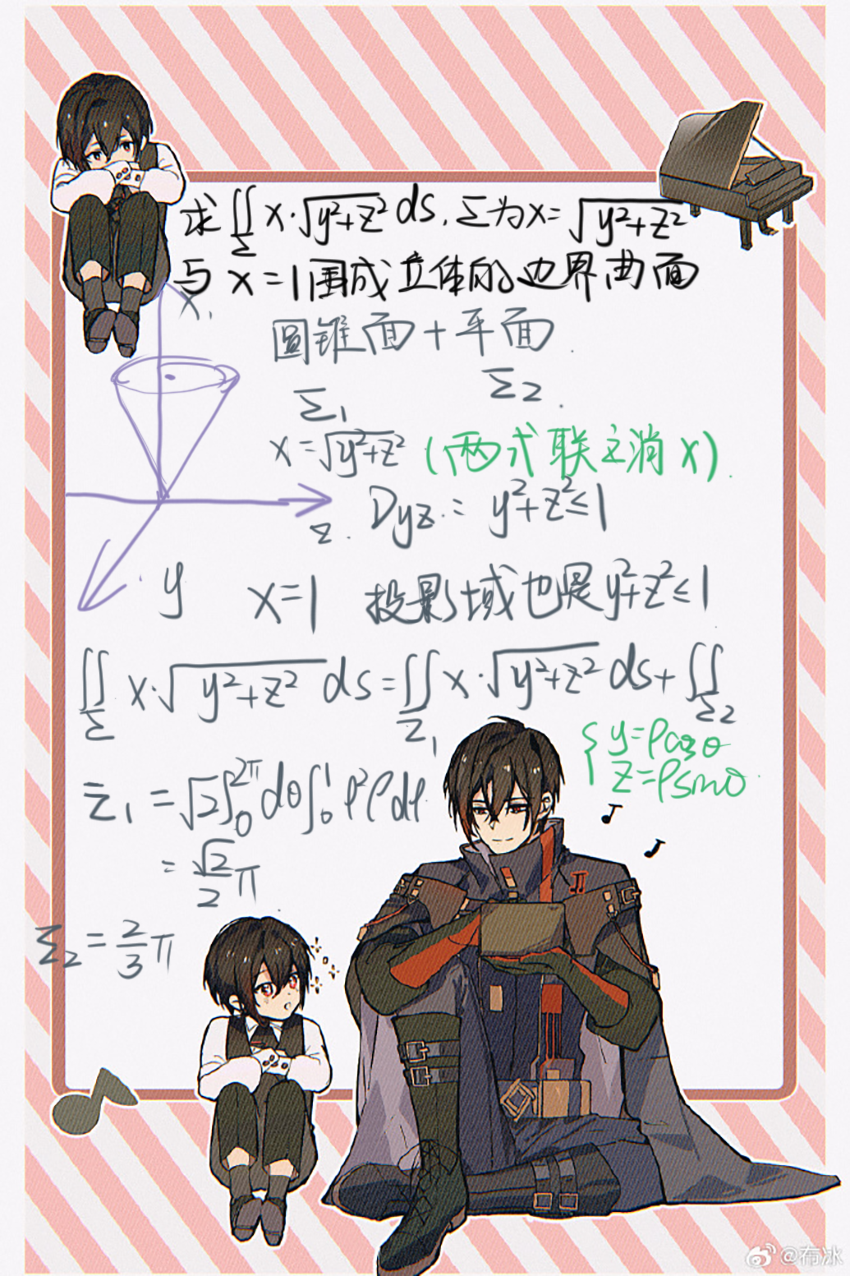 求∬_Σ x·√(y²+z²) ds, Σ为x=√(y²+z²)
与x=1围成立体的边界曲面
x
圆锥面+平面
Σ₁ Σ₂
x=√(y²+z²) (两式联立消x)
z Dyz: y²+z²≤1
y x=1 投影域也是y²+z²≤1
∬_Σ x·√(y²+z²) ds=∬_Σ₁ x·√(y²+z²) ds+∬_Σ₂
{y=ρcosθ
z=ρsinθ
Σ₁=√2∫₀^2π dθ∫₀^1 ρ²ρdρ
=√2/2 π
Σ₂=2/3 π
@布冰